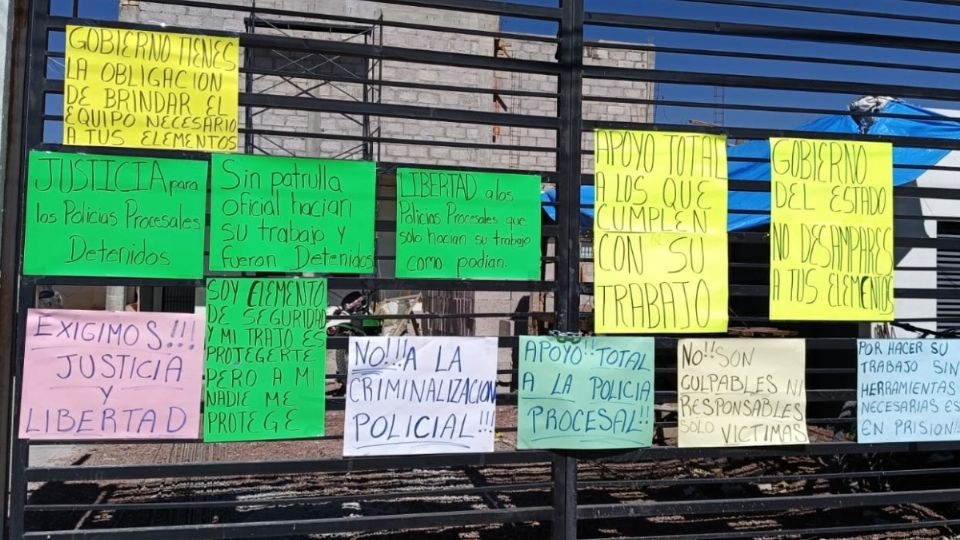 GOBIERNO TIENES
LA OBLIGACION
DE BRINDAR EL
EQUIPO NECESARIO
A TUS ELEMENTOS
JUSTICIA para
los Policias Procesales
Detenidos
Sin patrulla
oficial hacian
su trabajo y
fueron Detenidos
LIBERTAD a los
Policias Procesales que
solo hacian su trabajo
como podian.
APOYO TOTAL
A LOS QUE
CUMPLEN
CON SU
TRABAJO
GOBIERNO
DEL ESTADO
NO DESAMPARES
A TUS ELEMENTOS
EXIGIMOS!!!
JUSTICIA
Y
LIBERTAD
SOY ELEMENTO
DE SEGURIDAD
Y MI TRATO ES
PROTEGERTE
PERO A MI
NADIE ME
PROTEGE
NO!!! A LA
CRIMINALIZACION
POLICIAL!!!
APOYO!! TOTAL
A LA POLICIA
PROCESAL!!
NO!! SON
CULPABLES NI
RESPONSABLES
SOLO VICTIMAS
POR HACER SU
TRABAJO SIN
HERRAMIENTAS
NECESARIAS ES
EN PRISION